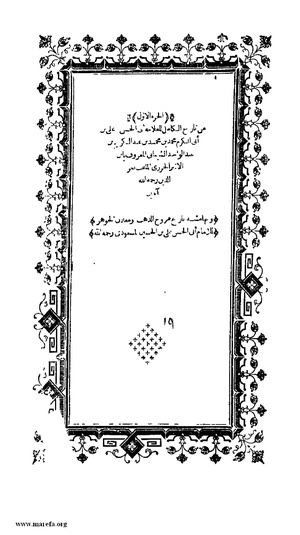 ﴿ الجزء الاول ﴾
من تاريخ الكامل للعلامة أبى الحسن على بن
أبى الكرم محمد بن محمد بن عبد الكريم بن
عبد الواحد الشيبانى المعروف بابن
الاثير الجزرى الملقب بعز
الدين رحمه الله
آمين
﴿ وبهامشه تاريخ مروج الذهب ومعادن الجوهر ﴾
﴿ للامام أبى الحسن على بن الحسين المسعودى رحمه الله ﴾
١٩
www.marefa.org